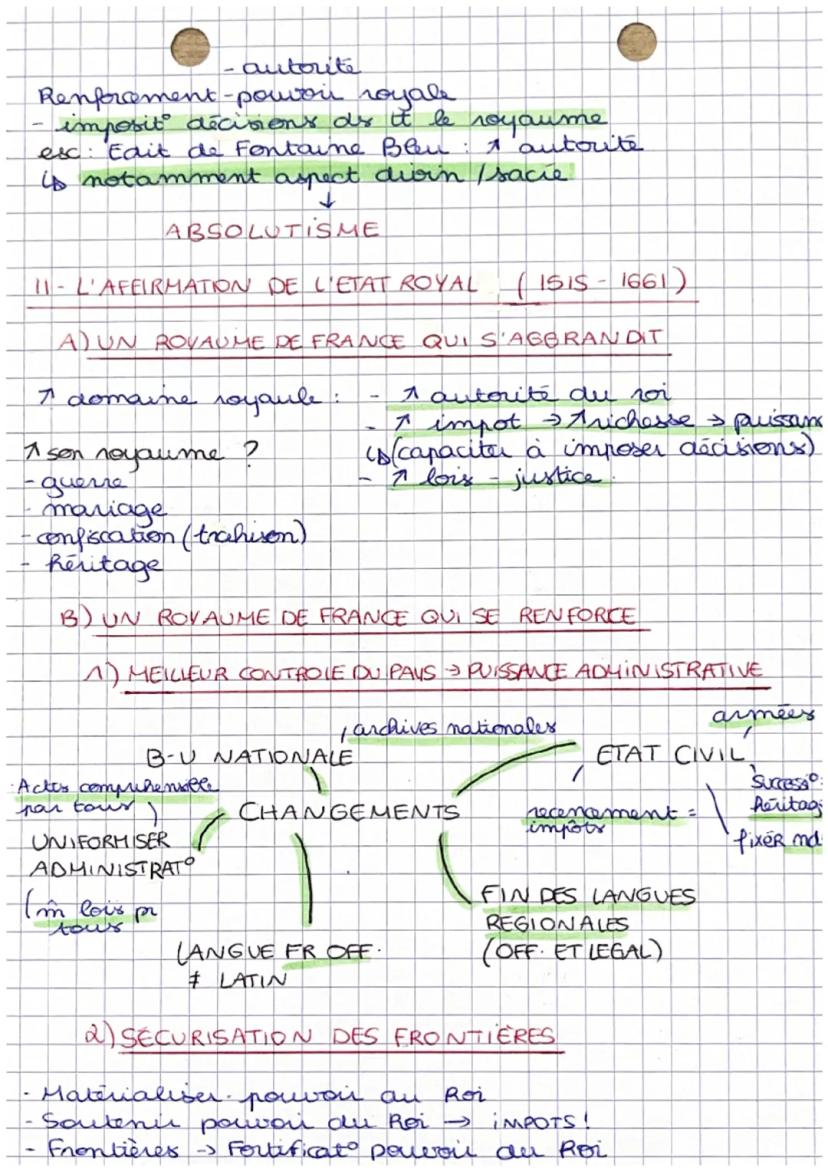 - autorité
Renforcement - pouvoir royale
- imposit° décisions ds tt le royaume
esc : Edit de Fontaine Bleu : ↗ autorité
↳ notamment aspect divin / sacie
↓
ABSOLUTISME
II - L'AFFIRMATION DE L'ETAT ROYAL ( 1515 - 1661 )
A) UN ROYAUME DE FRANCE QUI S'AGGRANDIT
↗ domaine royaule : - ↗ autorité du roi
- ↗ impot → ↗ richesse → puissanc
↗ son royaume ? ↳ (capaciter à imposer décisions)
- guerre - ↗ lois - justice.
- mariage
- confiscation (trahison)
- héritage
B) UN ROYAUME DE FRANCE QUI SE RENFORCE
1) MEILLEUR CONTROLE DU PAYS → PUISSANCE ADMINISTRATIVE
armées
archives nationales
B-U NATIONALE ETAT CIVIL
Actes compréhensible
par tous
success°
héritag
CHANGEMENTS
recencement =
impôts
fixér nd
UNIFORMISER
ADMINISTRAT°
(m̂ lois pr
tous
FIN DES LANGUES
REGIONALES
(OFF. ET LEGAL)
LANGUE FR OFF.
≠ LATIN
2) SÉCURISATION DES FRONTIÈRES
- Matérialiser pouvoir au Roi
- Soutenir pouvoir du Roi → IMPOTS !
- Frontières → Fortificat° pouvoir du Roi